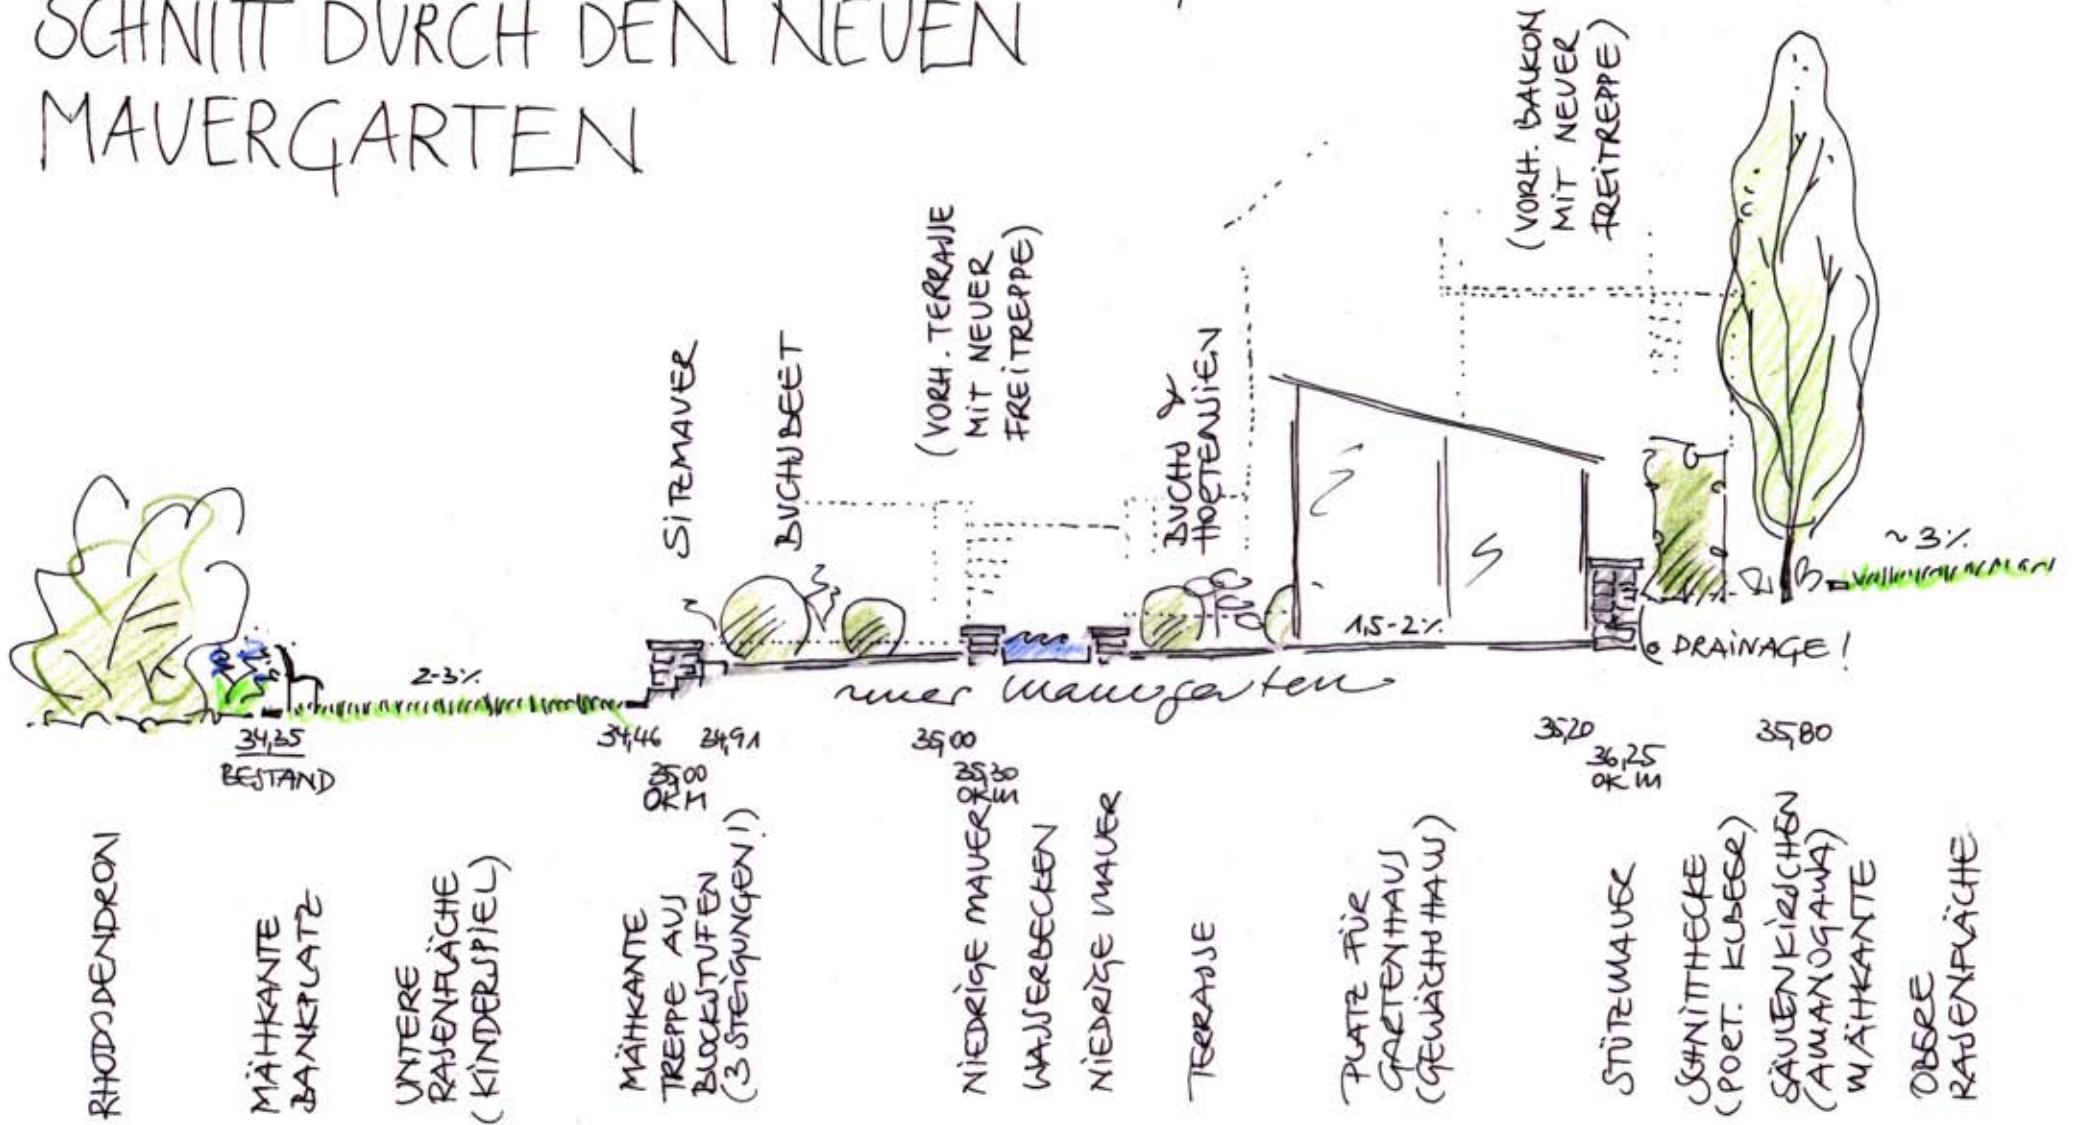 SCHNITT DURCH DEN NEUEN
MAUERGARTEN
(VORH. BALKON
MIT NEUER
FREITREPPE)
(VORH. TERRASSE
MIT NEUER
FREITREPPE)
SITZMAUER
BUCHSBEET
BUCHS &
HORTENSIEN
~3%
1,5-2%
2-3%
DRAINAGE!
neuer mauergarten
34,35
BESTAND
34,46
34,91
35,00
OK M
35,00
35,30
OK M
35,20
36,25
OK M
35,80
RHODODENDRON
MÄHKANTE
BANKPLATZ
UNTERE
RASENFLÄCHE
(KINDERSPIEL)
MÄHKANTE
TREPPE AUS
BLOCKSTUFEN
(3 STEIGUNGEN!)
NIEDRIGE MAUER
WASSERBECKEN
NIEDRIGE MAUER
TERRASSE
PLATZ FÜR
GARTENHAUS
(GEWÄCHSHAUS)
STÜTZMAUER
SCHNITTHECKE
(PORT. KLBEER)
SÄULENKIRSCHEN
(AMANOGAWA)
MÄHKANTE
OBERE
RASENFLÄCHE